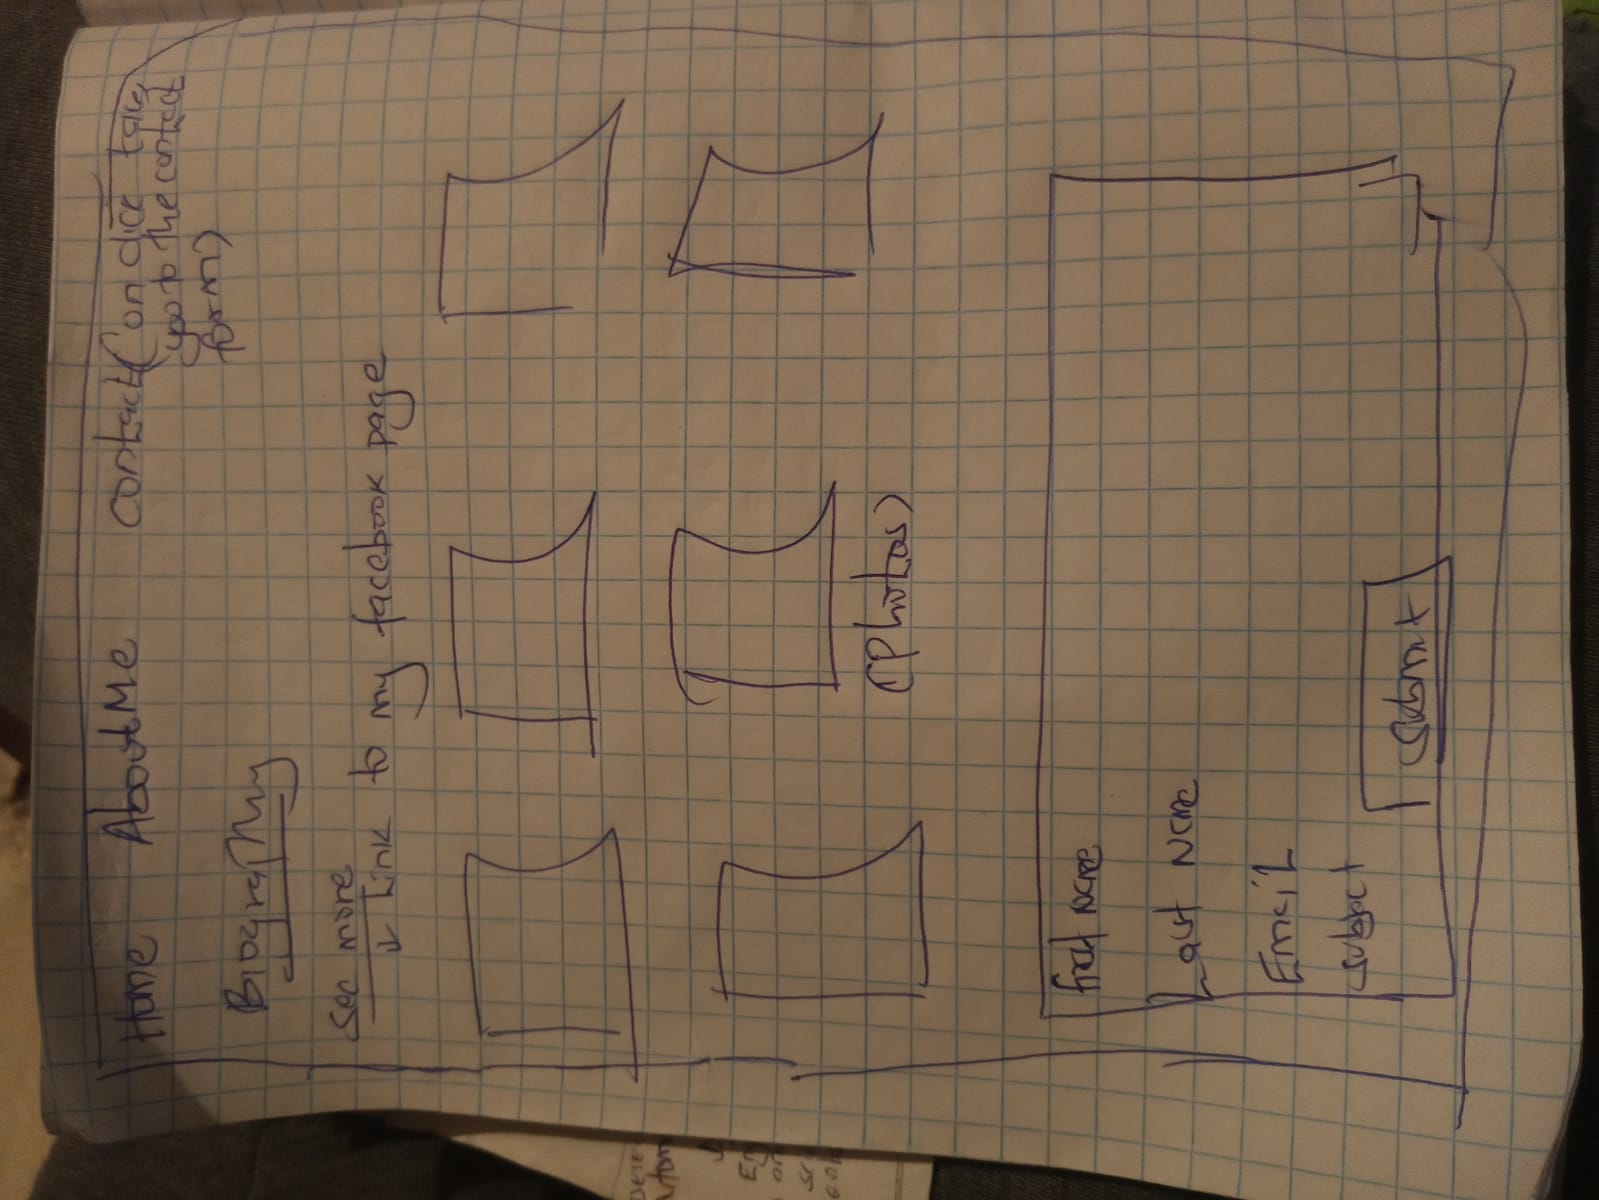 Home About Me Contact (on click takes
you to the contact
form)
Biography
See more
Link to my facebook page
(Photos)
First name
Last Name
Email
Subject
Submit